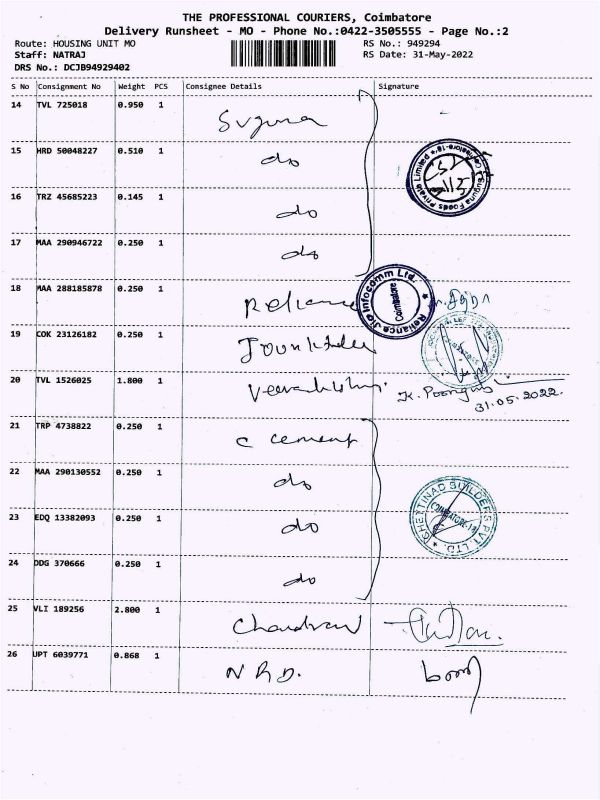 THE PROFESSIONAL COURIERS, Coimbatore
Delivery Runsheet - MO - Phone No.:0422-3505555 - Page No.:2
Route: HOUSING UNIT MO RS No.: 949294
Staff: NATRAJ RS Date: 31-May-2022
DRS No.: DCJB94929402
S No Consignment No Weight PCS Consignee Details Signature
14 TVL 725018 0.950 1 Suguna
15 HRD 50048227 0.510 1 do
Suguna Foods Private Limited * Coimbatore-18 *
16 TRZ 45685223 0.145 1 do
17 MAA 290946722 0.250 1 do
18 MAA 288185878 0.250 1 Reliance
Reliance Jio Infocomm Ltd. * Coimbatore
19 COK 23126182 0.250 1
20 TVL 1526025 1.800 1
31.05.2022.
21 TRP 4738822 0.250 1 C cement
22 MAA 290130552 0.250 1 do
23 EDQ 13382093 0.250 1 do
CHETTINAD BUILDERS PVT. LTD. * COIMBATORE-18
24 DDG 370666 0.250 1 do
25 VLI 189256 2.800 1
26 UPT 6039771 0.868 1 N R D.